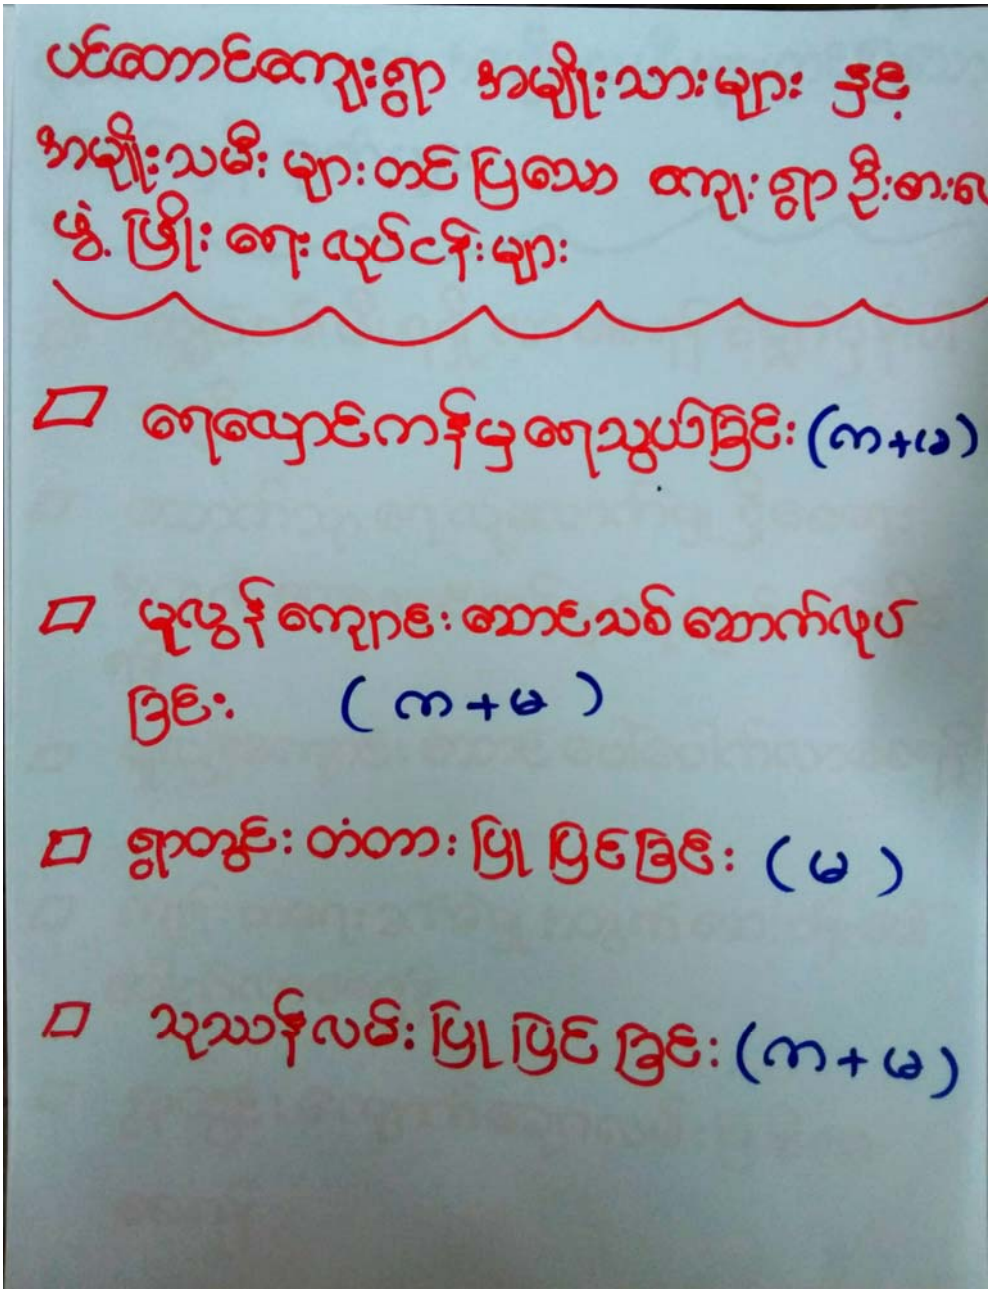 ပင်တောင်ကျေးရွာ အမျိုးသားများ နှင့်
အမျိုးသမီး များ တင်ပြသော ကျေးရွာ ဦးစားပေး
ဖွံ့ဖြိုး ရေး လုပ်ငန်းများ
□ ရေလှောင်ကန်မှ ရေသွယ်ခြင်း (ကျ+မ)
□ မူလွန်ကျောင်း ဆောင်သစ် ဆောက်လုပ်
ခြင်း (ကျ+မ)
□ ရွာတွင်း တံတား ပြုပြင်ခြင်း (မ)
□ သုသာန်လမ်း ပြုပြင်ခြင်း (ကျ+မ)